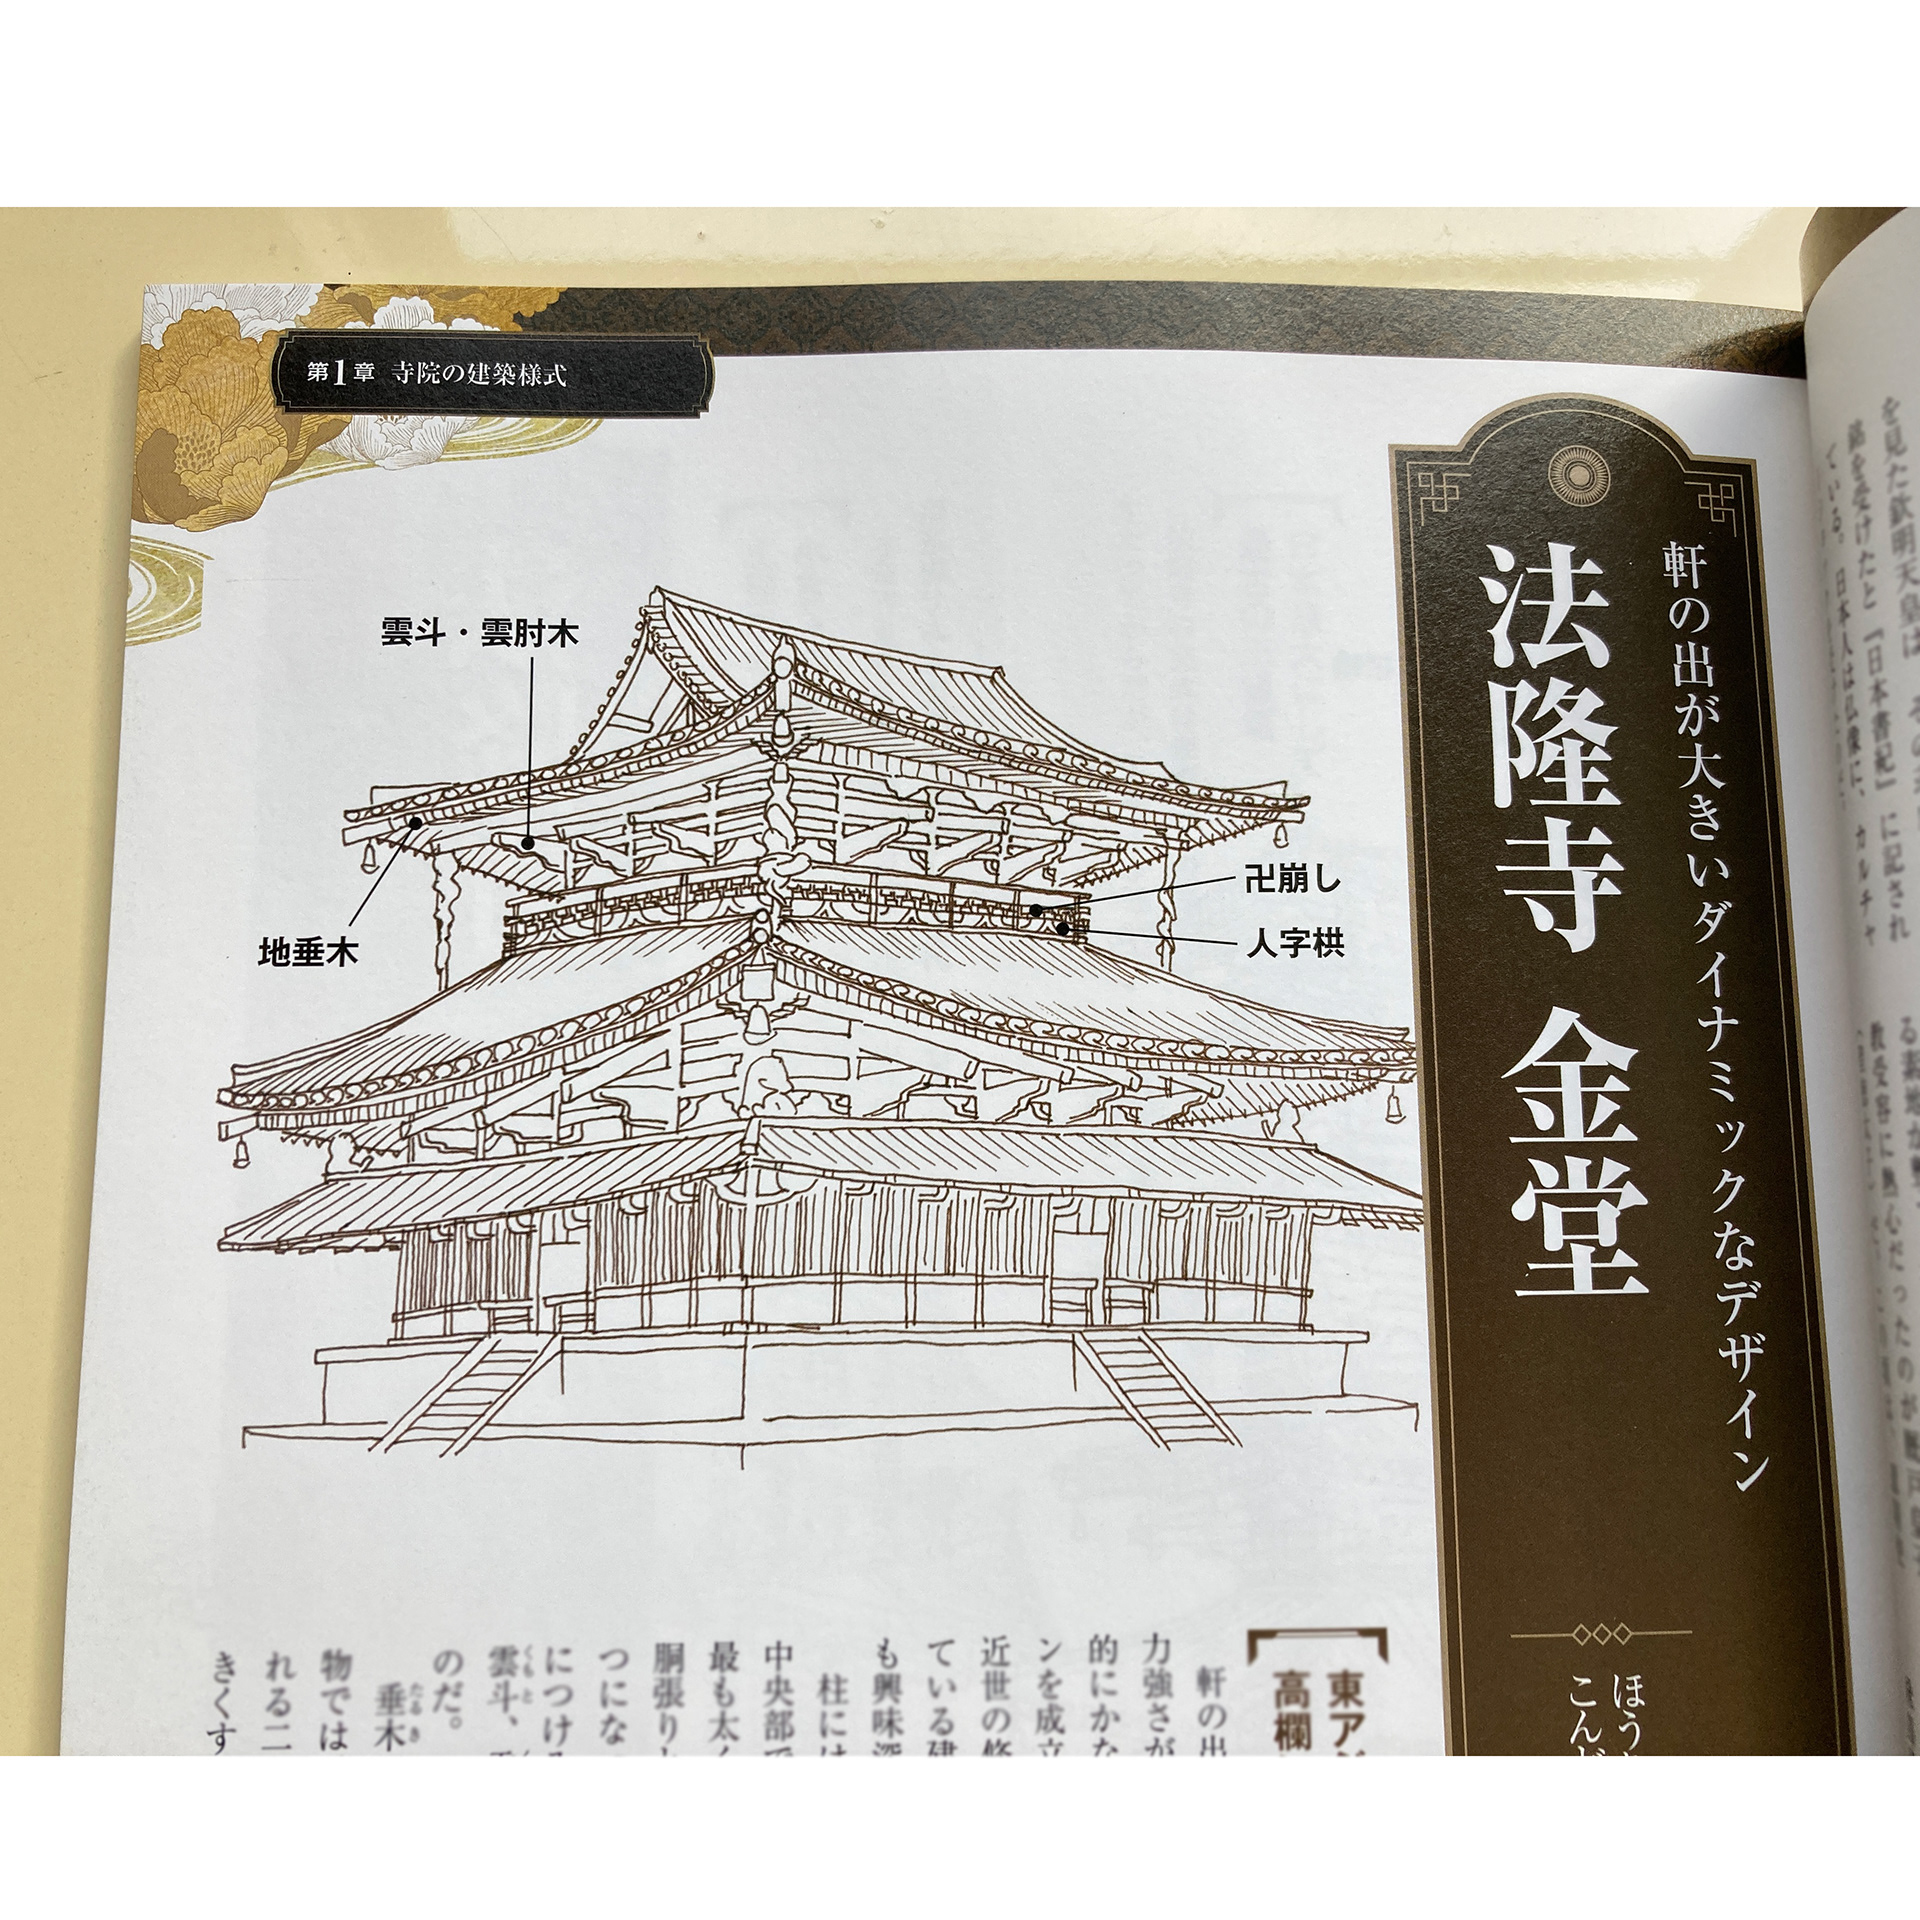 第1章 寺院の建築様式
軒の出が大きいダイナミックなデザイン
法隆寺 金堂
雲斗・雲肘木
地垂木
卍崩し
人字栱
東ア
高欄
軒の出
力強さが
的にかな
ンを成立
近世の修
ている建
も興味深
柱には
中央部で
最も太く
胴張り
つにな
につける
雲斗、
くもと
のだ。
垂木
たるき
物では
れる二
きくす
ほう
こんど
を見た欽明天皇は
銘を受けたと『日本書紀』に記され
ている。日本人は仏像に、カルチャ
教受容に熱心だったのが